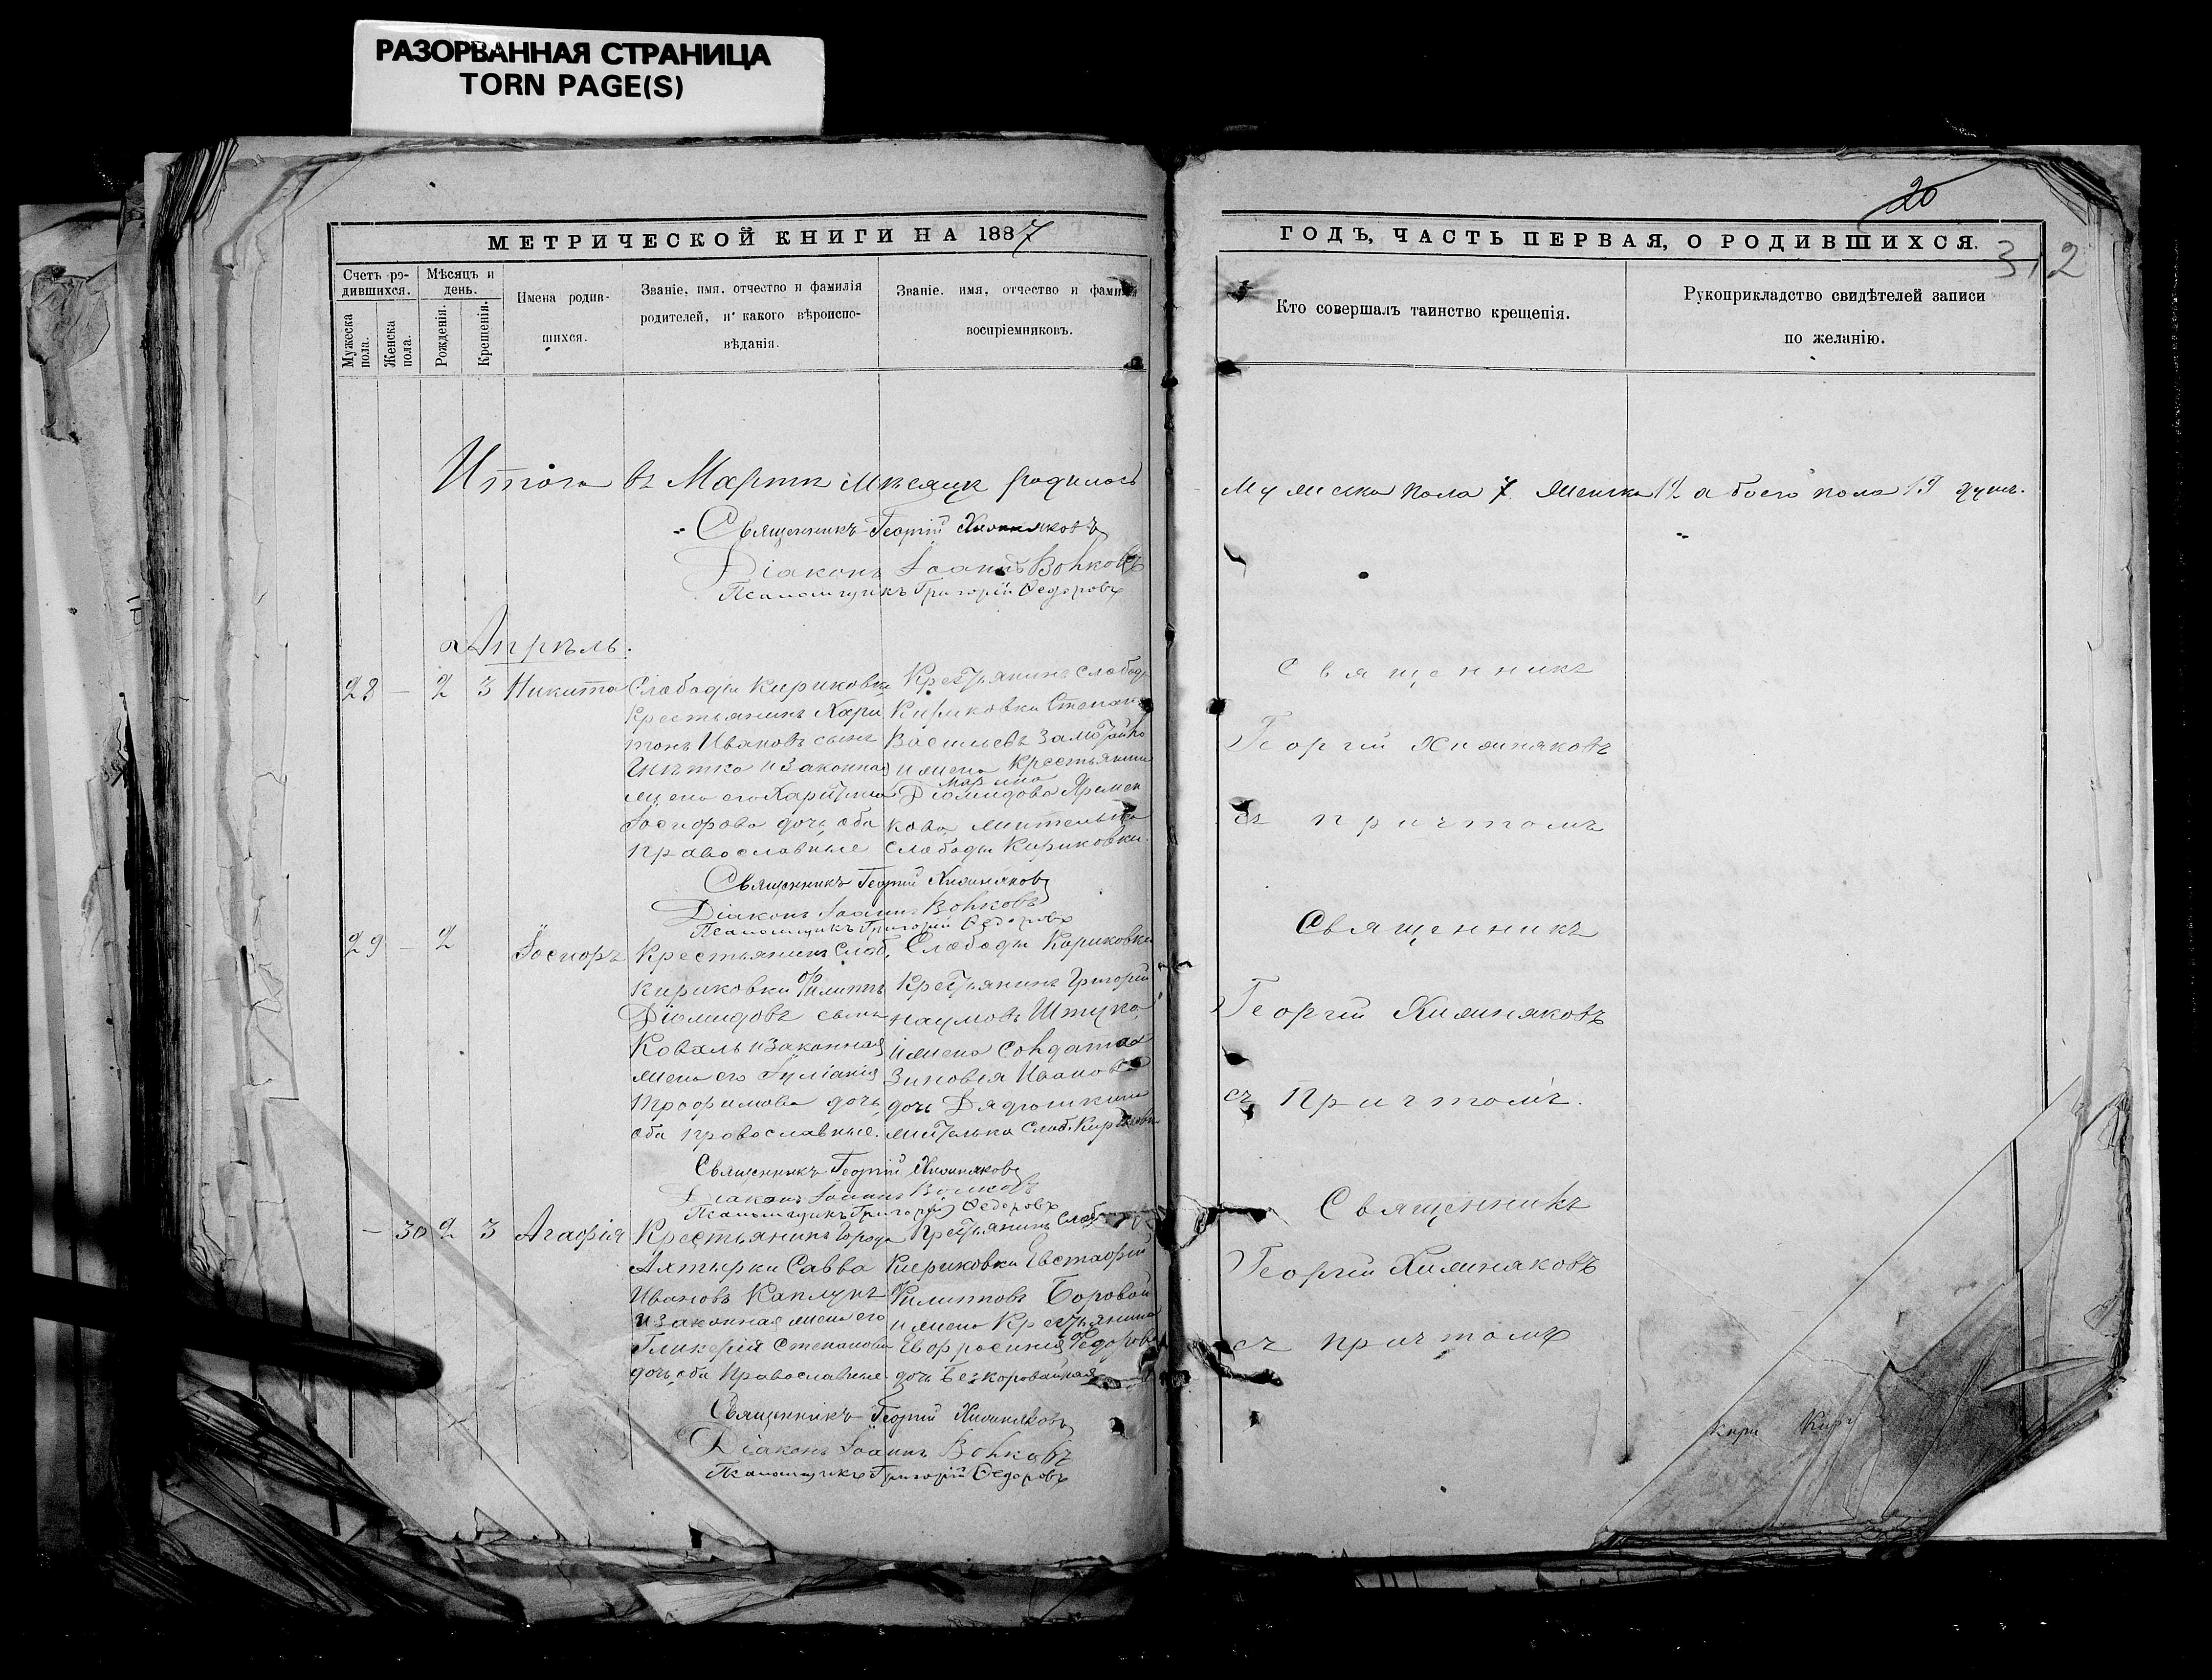 РАЗОРВАННАЯ СТРАНИЦА
TORN PAGE(S)
МЕТРИЧЕСКОЙ КНИГИ НА 1887
Счетъ ро-
дившихся.
Мѣсяцъ и
день.
Мужеска
пола.
Женска
пола.
Рожденія.
Крещенія.
Имена родив-
шихся.
Званіе, имя, отчество и фамилія
родителей, и какого вѣроиспо-
вѣданія.
Званіе, имя, отчество и фамилія
воспріемниковъ.
Итого въ Мартѣ мѣсяцѣ родилось
Священникъ Георгій Хижняковъ
Діаконъ Іоаннъ Волковъ
Псаломщикъ Григорій Ѳедоровъ
Апрѣль.
28 — 2 3 Никита
Слободы Кириковки
Крестьянинъ Хари
тонъ Ивановъ сынъ
и законная
жена его Харитина
дочь, оба
православные
Крестьянинъ слободы
Кириковки Степанъ
Васильевъ
и жена Крестьянина
Діомидова
кова жителька
слободы Кириковки.
Священникъ Георгій Хижняковъ
Діаконъ Іоаннъ Волковъ
Псаломщикъ Григорій Ѳедоровъ
29 — 2
Крестьянинъ слоб.
Кириковки Филиппъ
Діомидовъ сынъ
Коваль и законная
жена его Іуліанія
Трофимова дочь
оба православные.
Слободы Кириковки
Крестьянинъ Григорій
Наумовъ Штука
и жена солдатка
Зиновія Иванова
дочь
жителька слоб. Кириковки
Священникъ Георгій Хижняковъ
Діаконъ Іоаннъ Волковъ
Псаломщикъ Григорій Ѳедоровъ
— 30 2 3 Агафія
Крестьянинъ города
Ахтырки Савва
Ивановъ Каплунъ
и законная жена его
Гликерія Степанова
дочь, оба православные.
Крестьянинъ слоб.
Кириковки Евстафій
Филипповъ Боровой
и жена Крестьянина
Евфросинія Федорова
дочь Безкоровайная
Священникъ Георгій Хижняковъ
Діаконъ Іоаннъ Волковъ
Псаломщикъ Григорій Ѳедоровъ
20
312
ГОДЪ, ЧАСТЬ ПЕРВАЯ, О РОДИВШИХСЯ.
Кто совершалъ таинство крещенія.
Рукоприкладство свидѣтелей записи
по желанію.
Мужеска пола 7 Женска 12 а обоего пола 19 душъ.
Священникъ
Георгій Хижняковъ
съ причтомъ
Священникъ
Георгій Хижняковъ
съ Причтомъ.
Священникъ
Георгій Хижняковъ
съ причтомъ